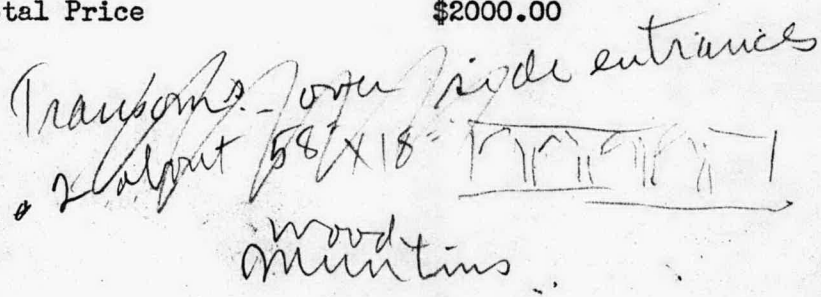 tal Price $2000.00
Transoms - over side entrances
2 about 58" X 18"
wood
Muntins